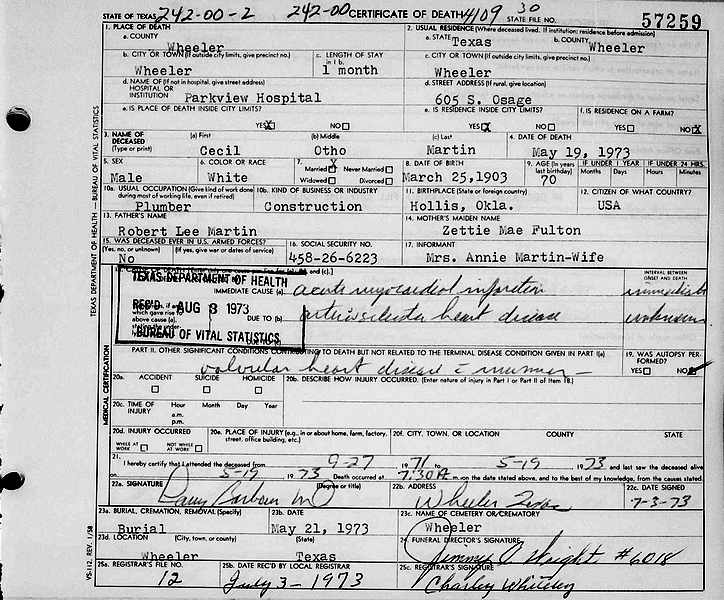 STATE OF TEXAS 242-00-2 242-00 CERTIFICATE OF DEATH 4109 30 STATE FILE NO. 57259
1. PLACE OF DEATH
a. COUNTY
Wheeler
2. USUAL RESIDENCE (Where deceased lived. If institution: residence before admission)
a. STATE Texas b. COUNTY Wheeler
b. CITY OR TOWN (If outside city limits, give precinct no.)
Wheeler
c. LENGTH OF STAY in 1 b.
1 month
c. CITY OR TOWN (If outside city limits, give precinct no.)
Wheeler
d. NAME OF (If not in hospital, give street address) HOSPITAL OR INSTITUTION
Parkview Hospital
d. STREET ADDRESS (If rural, give location)
605 S. Osage
e. IS PLACE OF DEATH INSIDE CITY LIMITS?
YES X NO
e. IS RESIDENCE INSIDE CITY LIMITS?
YES X NO
f. IS RESIDENCE ON A FARM?
YES NO X
3. NAME OF DECEASED (Type or print)
(a) First
Cecil
(b) Middle
Otho
(c) Last
Martin
4. DATE OF DEATH
May 19, 1973
5. SEX
Male
6. COLOR OR RACE
White
7. Married X Never Married
Widowed Divorced
8. DATE OF BIRTH
March 25,1903
9. AGE (In years last birthday)
70
IF UNDER 1 YEAR
Months Days
IF UNDER 24 HRS.
Hours Minutes
10a. USUAL OCCUPATION (Give kind of work done during most of working life, even if retired)
Plumber
10b. KIND OF BUSINESS OR INDUSTRY
Construction
11. BIRTHPLACE (State or foreign country)
Hollis, Okla.
12. CITIZEN OF WHAT COUNTRY?
USA
13. FATHER'S NAME
Robert Lee Martin
14. MOTHER'S MAIDEN NAME
Zettie Mae Fulton
15. WAS DECEASED EVER IN U.S. ARMED FORCES?
(Yes, no, or unknown) (If yes, give war or dates of service)
No
16. SOCIAL SECURITY NO.
458-26-6223
17. INFORMANT
Mrs. Annie Martin-Wife
TEXAS DEPARTMENT OF HEALTH
REC'D AUG 3 1973
BUREAU OF VITAL STATISTICS
IMMEDIATE CAUSE (a) acute myocardial infarction
DUE TO (b) heart disease
DUE TO (c)
INTERVAL BETWEEN ONSET AND DEATH
immediate
unknown
PART II. OTHER SIGNIFICANT CONDITIONS CONTRIBUTING TO DEATH BUT NOT RELATED TO THE TERMINAL DISEASE CONDITION GIVEN IN PART I(a)
valvular heart disease murmur
19. WAS AUTOPSY PERFORMED?
YES NO
20a. ACCIDENT SUICIDE HOMICIDE
20b. DESCRIBE HOW INJURY OCCURRED. (Enter nature of injury in Part I or Part II of Item 18.)
20c. TIME OF INJURY Hour Month Day Year
a.m.
p.m.
20d. INJURY OCCURRED
WHILE AT WORK NOT WHILE AT WORK
20e. PLACE OF INJURY (e.g., in or about home, farm, factory, street, office building, etc.)
20f. CITY, TOWN, OR LOCATION COUNTY STATE
21. I hereby certify that I attended the deceased from 9-27 1971 to 5-19 1973 and last saw the deceased alive
on 5-19 1973 Death occurred at 7:30 A m. on the date stated above, and to the best of my knowledge, from the causes stated.
22a. SIGNATURE (Degree or title)
MD
22b. ADDRESS
Wheeler Texas
22c. DATE SIGNED
7-3-73
23a. BURIAL, CREMATION, REMOVAL (Specify)
Burial
23b. DATE
May 21, 1973
23c. NAME OF CEMETERY OR CREMATORY
Wheeler
23d. LOCATION (City, town, or county) (State)
Wheeler Texas
24. FUNERAL DIRECTOR'S SIGNATURE
Wright #6018
25a. REGISTRAR'S FILE NO.
12
25b. DATE REC'D BY LOCAL REGISTRAR
July 3-1973
25c. REGISTRAR'S SIGNATURE
Charley
TEXAS DEPARTMENT OF HEALTH — BUREAU OF VITAL STATISTICS
MEDICAL CERTIFICATION
VS-112, REV. 1/58